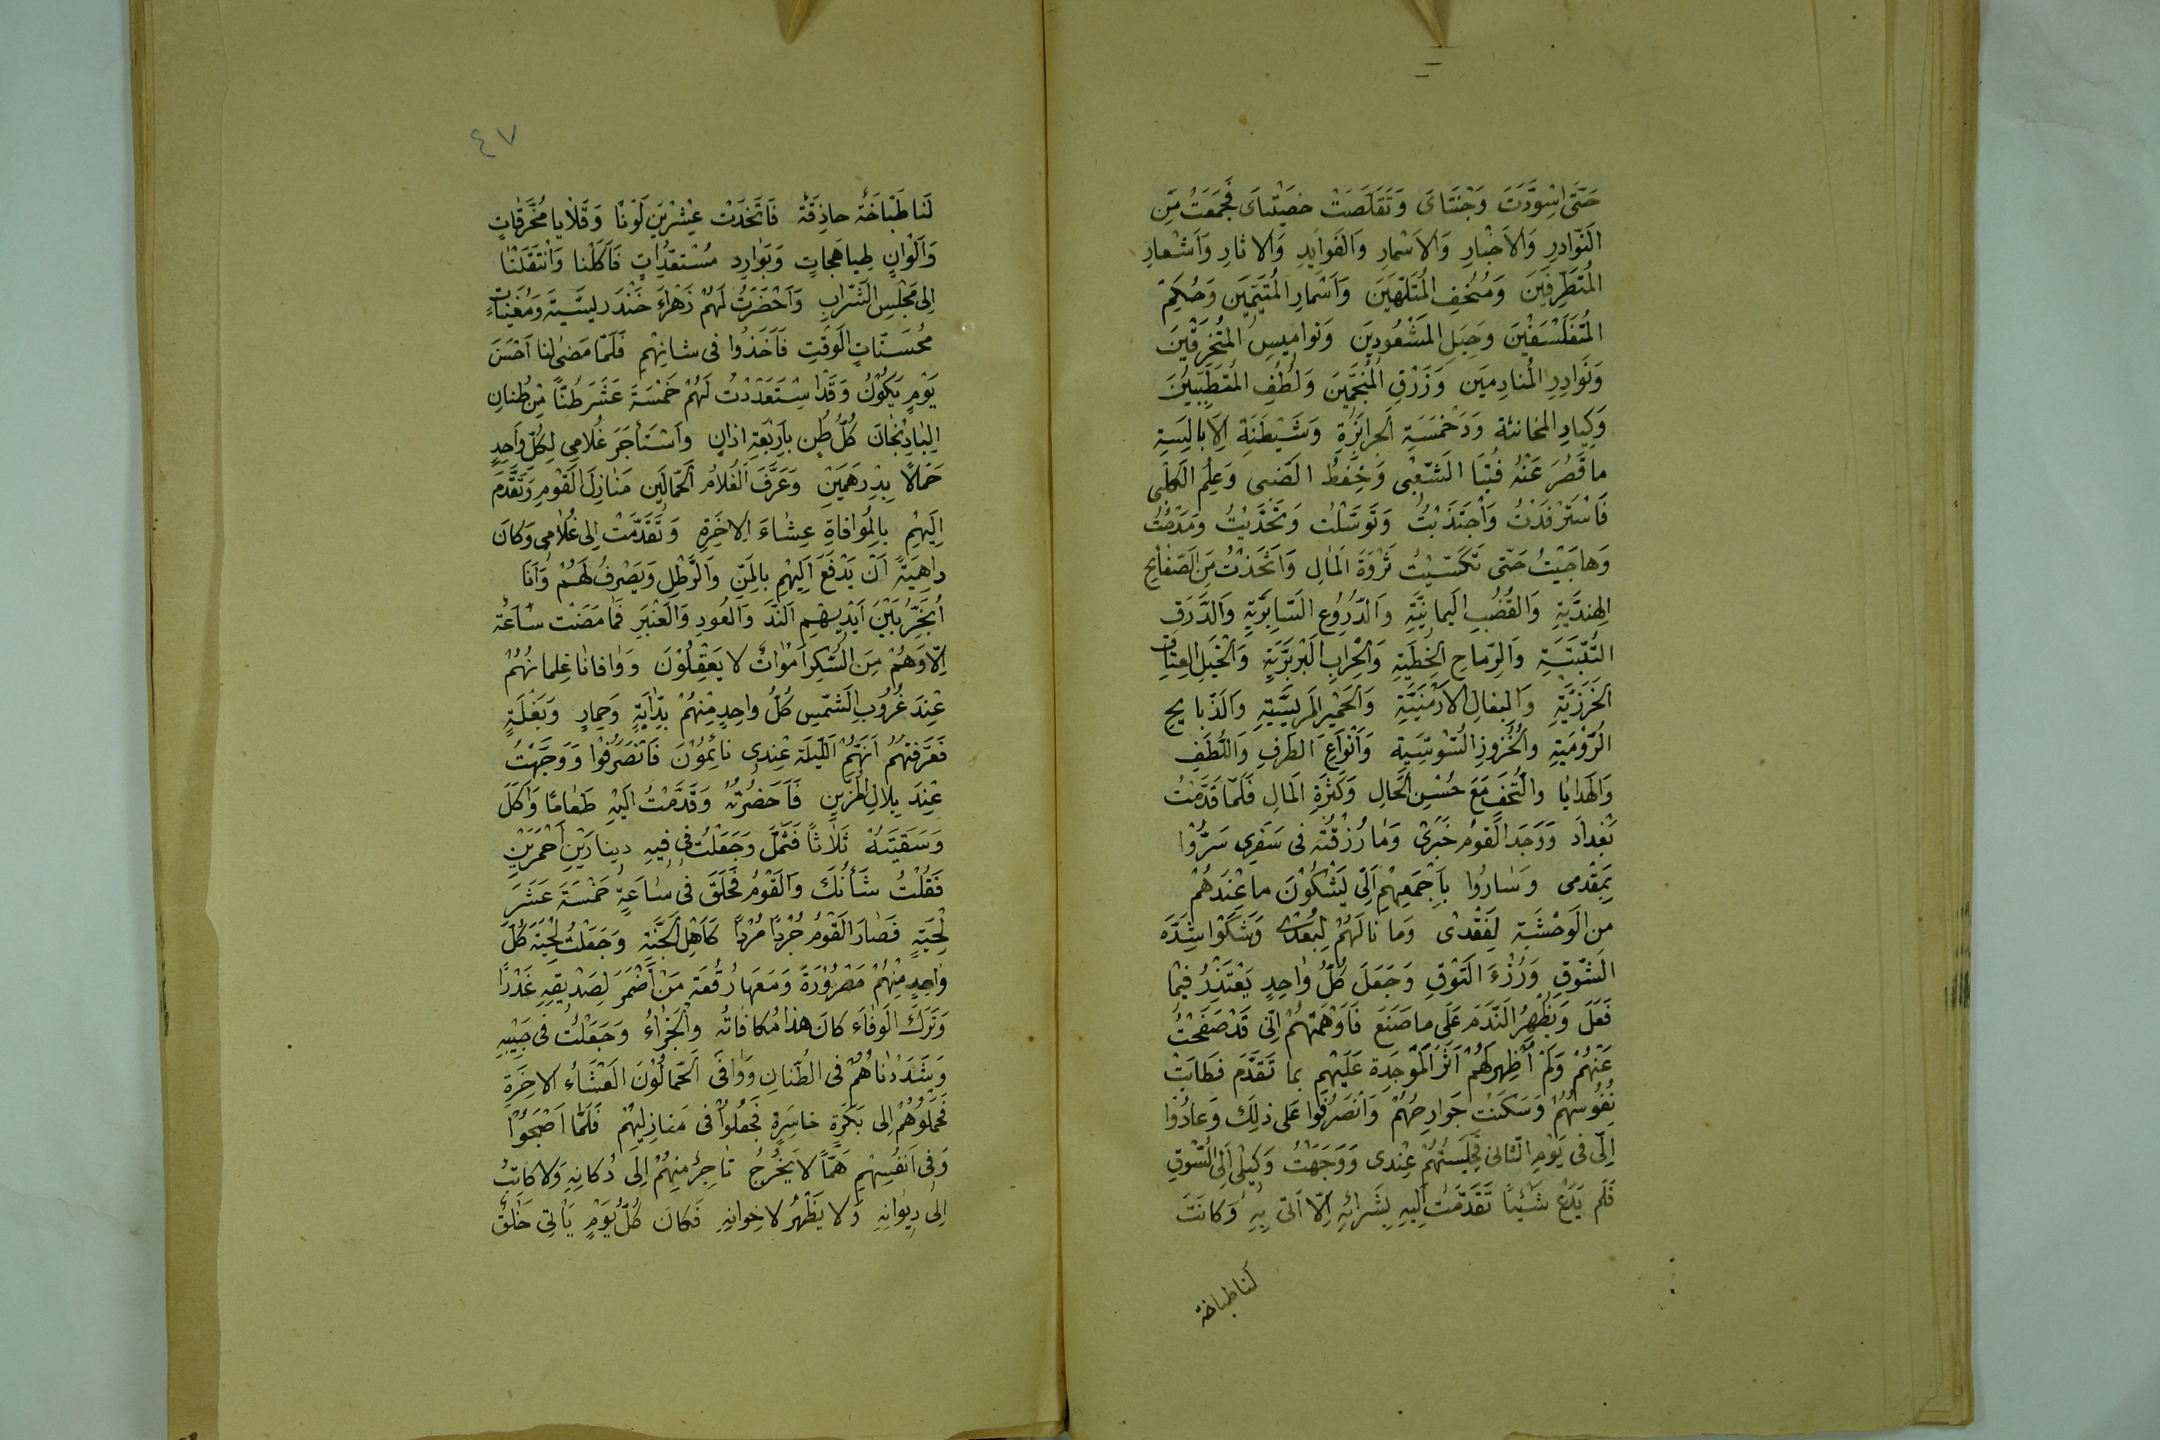 حَتَّى اسْوَدَّتْ وَجْنَتَاىَ وَتَقَلَّصَتْ خصْيَتَاىَ فَجَمَعْتُ مِنَ
النَّوَادِرِ وَالاَخْبَارِ وَالاَسْمَارِ وَالفَوَايِدِ وَالاثَارِ وَاَشْعَارِ
المُتَطَرِّفِينَ وَسُخْفِ المُتَلَهِّينَ وَاَسْمَارِ المُتَيَّمِينَ وَحُكْمِ
المُتَفَلْسِفِينَ وَحِيَلِ المُشَعْوِذِينَ وَنَوَامِيسِ المُتَخَرِّقِينَ
وَنَوَادِرِ المُنَادِمِينَ وَرَزْقِ المُنَجِّمِينَ وَلُطْفِ المُتَطَبِّبِينَ
وَكِيَادِ المَخَانِثَةِ وَدَخْمَسَةِ الجَرَابِزَةِ وَشَيْطَنَةِ الاَبَالِسَةِ
مَا قَصُرَ عَنْهُ فُتْيَا الشَّعْبِى وَحِفْظُ الضَّبِى وَعِلْمُ الكَلْبِى
فَاسْتَرْفَدْتُ وَاجْتَذَبْتُ وَتَوَسَّلْتُ وَتَكَدَّيْتُ وَمَدَحْتُ
وَهَاجَيْتُ حَتَّى تَكَسَّبْتُ ثَرْوَةَ المَالِ وَاتَّخَذْتُ مِنَ الصَّفَايِحِ
الهِنْدِيَّةِ وَالقُضُبِ اليَمَانِيَّةِ وَالدُّرُوعِ السَّابِرِيَّةِ وَالدَّرَقِ
التُّبَّتِيَّةِ وَالرِّمَاحِ الخَطِّيَّةِ وَالحِرَابِ البَرْبَرِيَّةِ وَالخَيْلِ العِتَاقِ
الخَزَرِيَّةِ وَالبِغَالِ الاَرْمَنِيَّةِ وَالحَمِيرِ المَرِيسِيَّةِ وَالدَّبَابِيجِ
الرُّومِيَّةِ وَالخُزُوزِ السُّوسِيَّةِ وَاَنْوَاعِ الطُّرَفِ وَاللُّطَفِ
وَالهَدَايَا وَالتُّحَفِ مَعَ حُسْنِ الحَالِ وَكَثْرَةِ المَالِ فَلَمَّا قَدِمْتُ
بَغْدَادَ وَوَجَدَ القَوْمُ خَبَرِى وَمَا رُزِقْتُهُ فِى سَفَرِى سَرُّوا
بِمَقْدَمِى وَسَارُوا بِاَجْمَعِهِمْ اِلَىَّ يَشْكُونَ مَا عِنْدَهُمْ
مِنَ الوَحْشَةِ لِفَقْدِى وَمَا نَالَهُمْ لِبُعْدِى وَشَكَوْا شِدَّةَ
الشَّوْقِ وَرُزْءَ التَّوْقِ وَجَعَلَ كُلُّ وَاحِدٍ يَعْتَذِرُ فِيمَا
فَعَلَ وَيُظْهِرُ النَّدَمَ عَلَى مَا صَنَعَ فَاَوْهَمْتُهُمْ اَنِّى قَدْ صَفَحْتُ
عَنْهُمْ وَلَمْ اُظْهِرْ لَهُمْ اَثَرَ المَوْجِدَةِ عَلَيْهِمْ بِمَا تَقَدَّمَ فَطَابَتْ
نُفُوسُهُمْ وَسَكَنَتْ جَوَارِحُهُمْ وَانْصَرَفُوا عَلَى ذلِكَ وَعَادُوا
اِلَىَّ فِى يَوْمِ الثَّانِى فَجَلَسْتُهُمْ عِنْدِى وَوَجَّهْتُ وَكِيلِى اِلَى السُّوقِ
فَلَمْ يَدَعْ شَيْئًا تَقَدَّمْتُ اِلَيْهِ بِشَرَائِهِ اِلَّا اَتَى بِهِ وَكَانَتْ
لَنَا طَبَّاخَة
٤٧
لَنَا طَبَّاخَةٌ حَاذِقَةٌ فَاتَّخَذَتْ عِشْرِينَ لَوْنًا وَقَلَايَا مُحَرَّقَاتٍ
وَاَلْوَانٍ طَبَاهَجَاتٍ وَنَوَادِرِ مُسْتَعَدَّاتٍ فَاَكَلْنَا وَانْتَقَلْنَا
اِلى مَجْلِسِ الشَّرَابِ وَاُحْضِرَتْ لَهُمْ زَهْرَاءُ خَنْدَرِيسِيَّةٌ وَمُغَنِّيَاتٌ
مُحْسِنَاتٍ الوَقْتِ فَاَخَذُوا فِى شَانِهِمْ فَلَمَّا مَضى لَنَا اَحْسَنُ
يَوْمٍ يَكُونُ وَقَدِ اسْتَعْدَدْتُ لَهُمْ خَمْسَةَ عَشَرَ طُنًّا مِنْ طُنَانِ
البَادِنْجَانِ كُلُّ طُنٍّ بِاَرْبَعَةِ اذَانٍ وَاسْتَأْجَرَ غُلَامِى لِكُلِّ وَاحِدٍ
حَمَّالًا بِدِرْهَمَيْنِ وَعَرَّفَ الغُلَامُ الحَمَّالِينَ مَنَازِلَ القَوْمِ وَتَقَدَّمَ
اِلَيْهِمْ بِالمُوَافَاةِ عِشَاءَ الاخِرَةِ وَتَقَدَّمْتُ اِلى غُلَامِى وَكَانَ
دَاهِيَةً اَنْ يَدْفَعَ اِلَيْهِمْ بِالمَنِّ وَالرَّطْلِ وَيَصْرِفَ لَهُمْ وَاَنَا
اُبَخِّرُ بَيْنَ اَيْدِيهِمِ النَّدَّ وَالعُودَ وَالعَنْبَرَ فَمَا مَضَتْ سَاعَةٌ
اِلَّا وَهُمْ مِنَ السُّكْرِ اَمْوَاتٌ لَا يَعْقِلُونَ وَوَافَانَا غِلْمَانُهُمْ
عِنْدَ غُرُوبِ الشَّمْسِ كُلُّ وَاحِدٍ مِنْهُمْ بِدَابَّةٍ وَحِمَارٍ وَبَغْلَةٍ
فَعَرَّفْتُهُمْ اَنَّهُمُ اللَّيْلَةَ عِنْدِى نَائِمُونَ فَانْصَرَفُوا وَوَجَّهْتُ
عِنْدَ بِلَالِ المُزَيِّنِ فَاَحْضَرْتُهُ وَقَدَّمْتُ اِلَيْهِ طَعَامًا وَاَكَلَ
وَسَقَيْتُهُ ثَلَاثًا فَثَمِلَ وَجَعَلْتُ فِى فِيهِ دِينَارَيْنِ اَحْمَرَيْنِ
فَقُلْتُ شَأْنُكَ وَالقَوْمَ فَحَلَقَ فِى سَاعَةٍ خَمْسَةَ عَشَرَ
لِحْيَةٍ فَصَارَ القَوْمُ جُرْدًا مُرْدًا كَاَهْلِ الجَنَّةِ وَجَعَلْتُ لِحْيَةَ كُلِّ
وَاحِدٍ مِنْهُمْ مَصْرُورَةً وَمَعَهَا رُقْعَةٌ مَنْ اَضْمَرَ لِصَدِيقِهِ غَدْرًا
وَتَرَكَ الوَفَاءَ كَانَ هذَا مُكَافَاتُهُ وَالجَزَاءُ وَجَعَلْتُ فِى جَيْبِهِ
وَشَدَدْنَاهُمْ فِى الطُّنَانِ وَوَافَى الحَمَّالُونَ العِشَاءَ الاخِرَةِ
فَحَمَلُوهُمْ اِلى بَكَرَةٍ خَاسِرَةٍ فَجُعِلُوا فِى مَنَازِلِهِمْ فَلَمَّا اَصْبَحُوا
وَفِى اَنْفُسِهِمْ هَمًّا لَا يَخْرُجُ تَاجِرٌ مِنْهُمْ اِلَى دُكَّانِهِ وَلَا كَاتِبٌ
اِلى دِيوَانِهِ وَلَا يَظْهَرُ لِاخِوَانِهِ فَكَانَ كُلَّ يَوْمٍ يَأْتِى خَلْقٌ